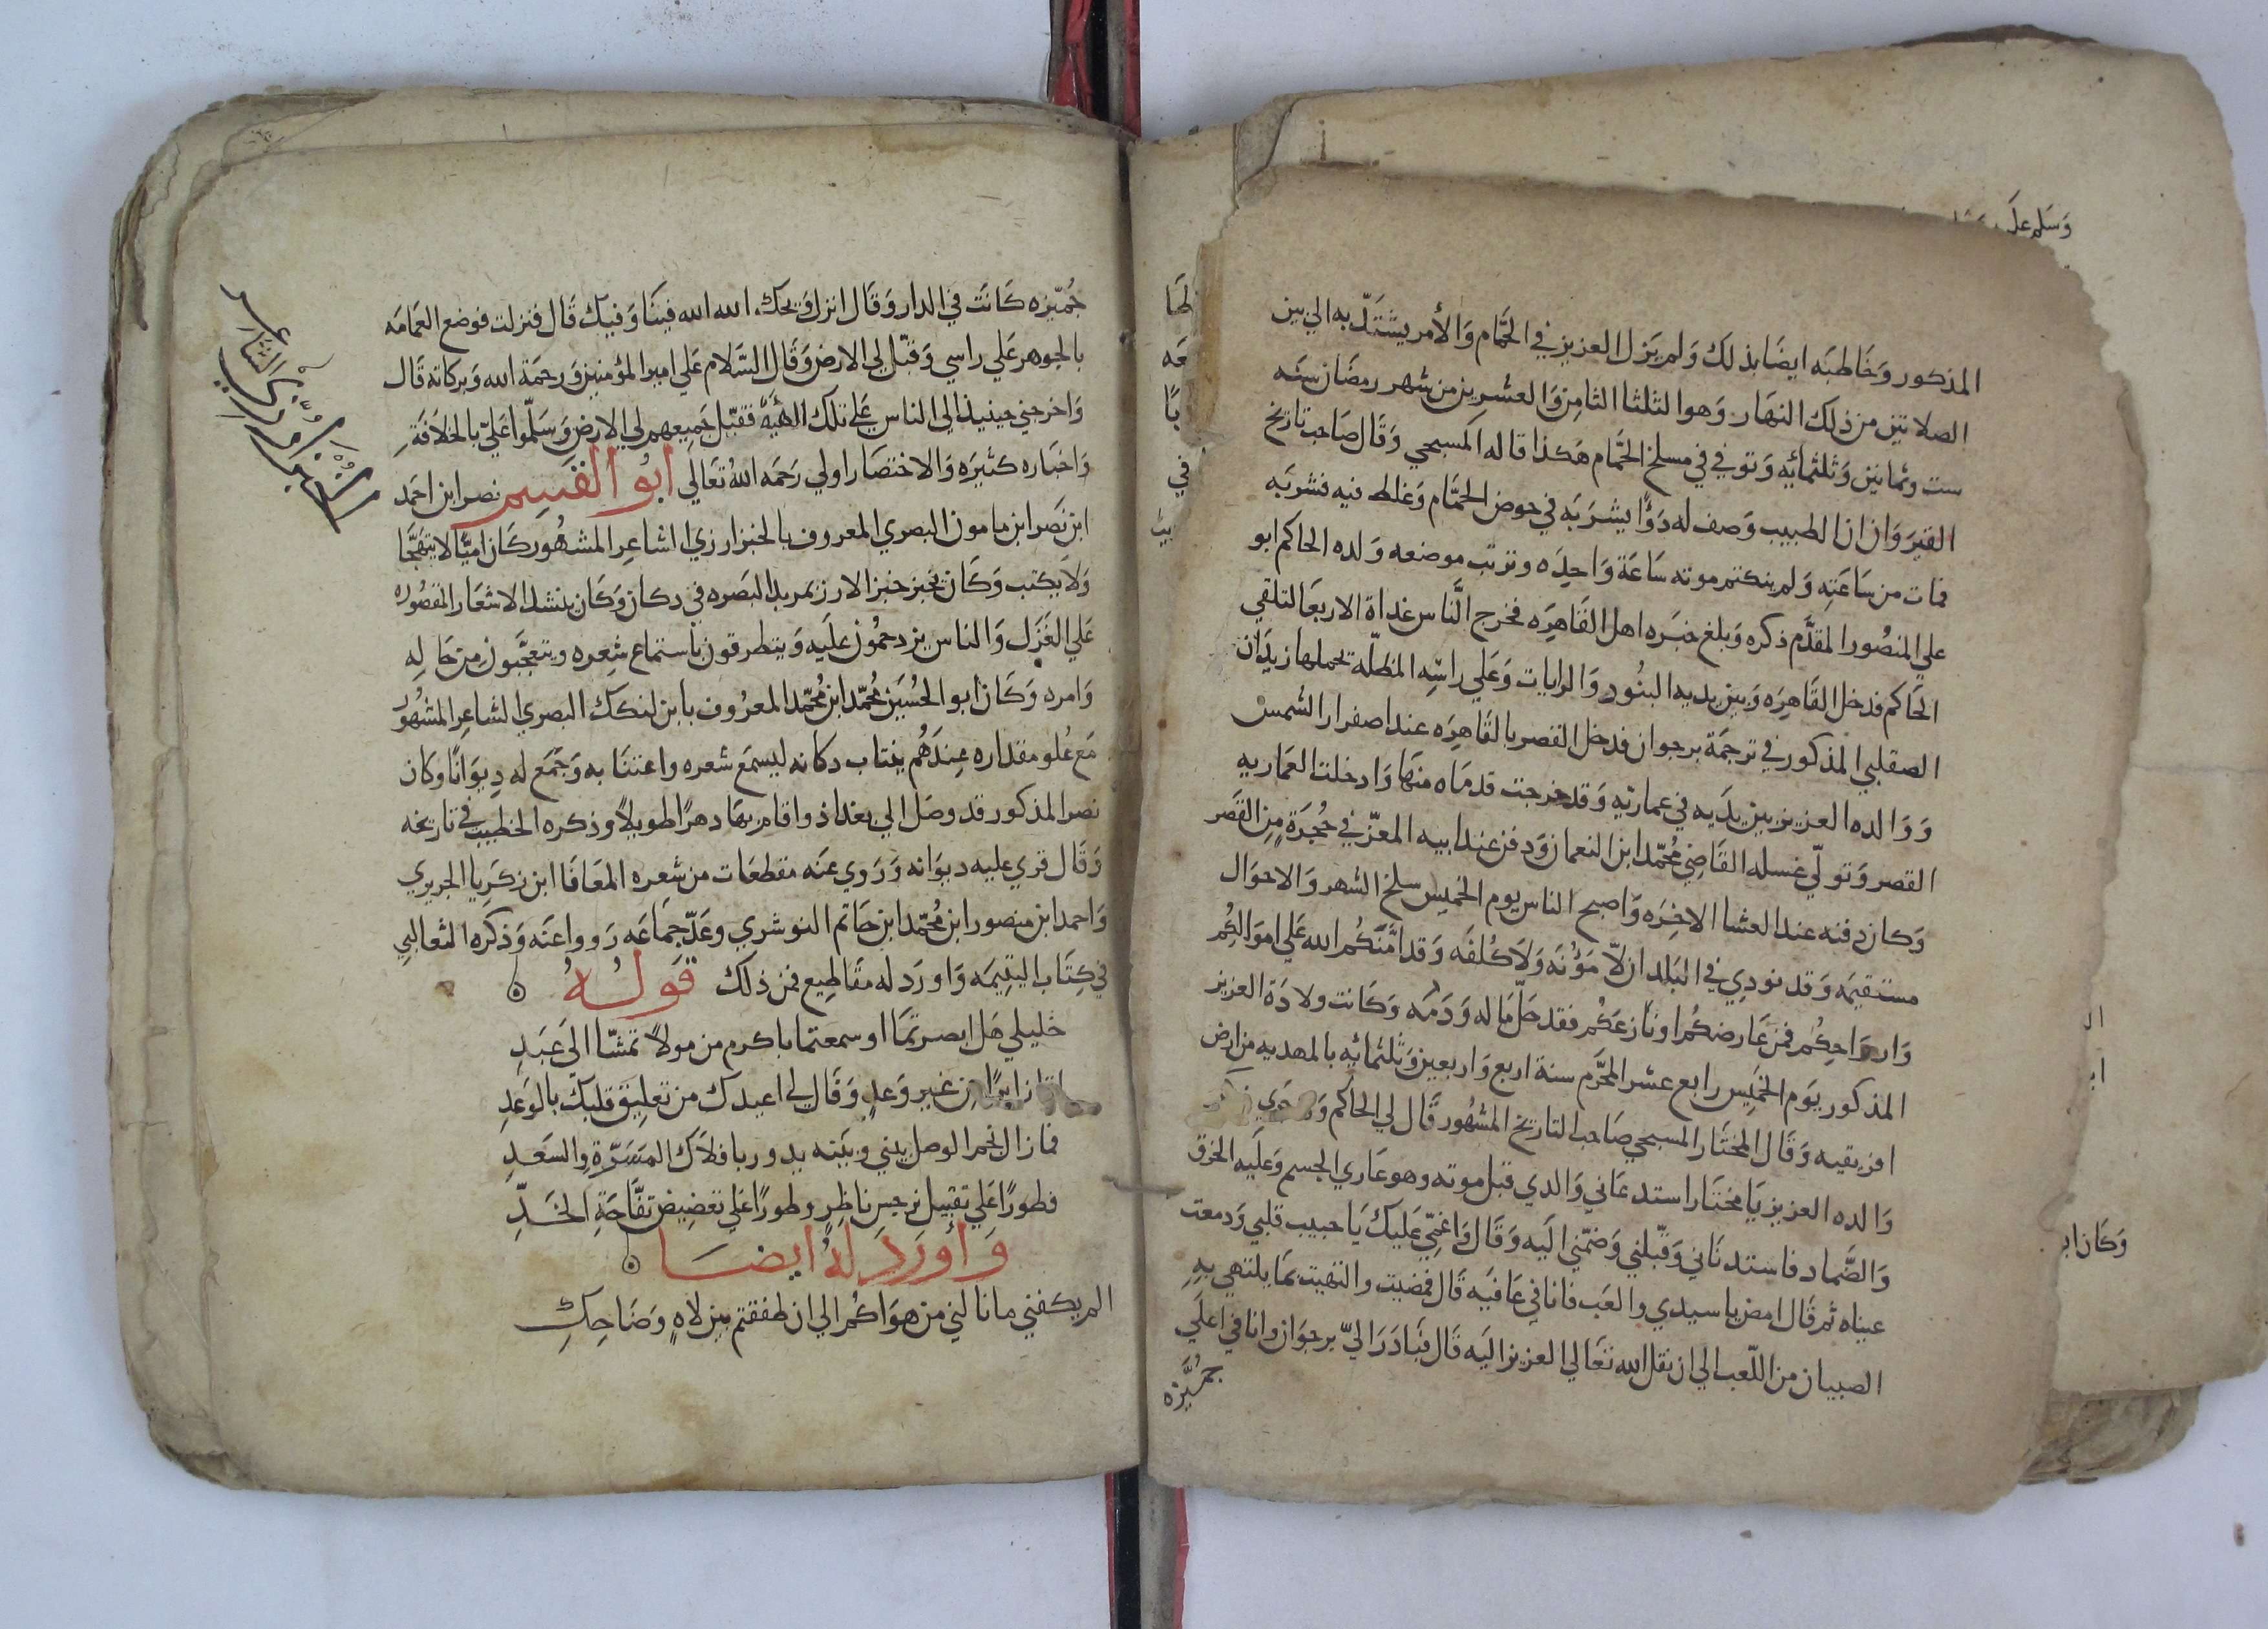 المذكور وَخَاطبَه ايضَا بذلك وَلم يَزل العزيز في الحَمَّام وَالأمر يشتَدّ به الي بين
الصلاتين من ذلك النهَار وَهو الثلثا الثامِن وَالعشرين من شهر رمضَان سنَه
ست وثمانين وَثلثمائيه وَتوفي في مسلخ الحَمَّام هَكذا قاله المسبحي وَقَال صَاحب تاريخ
القيرَوَان ان الطبيب وَصف له دَوًا يشرَبَه في حوض الحمَّام وَغلط فيه فشربَه
فمات من سَاعَتِه وَلم ينكتم موته سَاعَة وَاحِدَه وترتب موضعه وَلده الحاكم ابو
علي المنصُور المقدَّم ذكره وَبلغ خبَره اهل القَاهِرَه فخرج النَّاس غداة الاربعَا لتلقي
الحَاكم فدخل القَاهِرَه وَبين يديه البنُود وَالرايات وَعَلي راسِه المظلّه تحملها زيدَان
الصقلبي المذكور في ترجمَة برجوان فدخل القصر بالقَاهِرَه عند اصفرار الشمس
وَوَالده العزيز بين يدَيه في عمارتِه وَقد خرجت قدمَاه منهَا وَادخلت العَماريه
القصر وَتولّي غسله القَاضِي مُحمّد ابن النعمان وَدفن عند ابيه المعزّ في حُجرَةٍ مِن القصَر
وَكان دفنه عند العشا الاخِرَه وَاصبح الناس يوم الخميس سلخ الشهر وَالاحوَال
مستقيمَه وَقد نودِي في البَلد ان لّا مَؤُنَه وَلَا كُلفَه وَقد امَّنَكُم الله عَلي اموَالكُم
وَاروَاحِكُم فمَن عَارضكُم اونَازعَكُم فقد حَلّ مَاله وَدَمَه وَكَانت ولادَة العزيز
المذكور يَوم الخَميِس رابع عشر المحَرَّم سنة اربع وَاربعين وَثلثمائيه بالمهديه من ارض
افريقيه وَقَال المختَار المسبحي صَاحب التاريخ المشهُور قَال لي الحَاكم وَقد جَري ذكر
وَالده العزيز يَا مختَار استدعَاني وَالدي قبل موته وهو عَاري الجسم وَعلَيه الخرق
وَالضَّماد فاستدنَاني وَقبّلني وَضمّني اليَه وَقَال وَاغمّي عَليك يَا حبيب قلبي وَدمعت
عيناه ثم قَال امض يا سيدي والعَب فانا في عَافيَه قَال فمضيت والتهيت بمَا يلتهي بِه
الصبيان من اللّعب الي ان نقل الله تعَالي العزيز اليَه قَال فَبَادَرَ اليّ برجوَان وانا في اعلَي
جمُيَّزه
جُمّيزه كَانَت في الدار وَقَال انزل وَيحك، الله الله فينَا وَفيك قَال فنزلت فوضع العمَامَه
بالجوهر عَلي راسي وَقبّل لي الارض وَقَال السَّلام عَلي امير المؤمنين وَرحمَة الله وَبركاته قَال
وَاخرجني حينيذ الي الناس عَلي تلك الهَيئَه فقبّل جَميعهم لي الارض وَسَلّموا عَليّ بالخلَافَةِ
وَاخبَاره كثيَره وَالاختصَار اولي رَحمَه اللهُ تعَالي ابُو القسِم نصر ابن احمَد
ابن نَصر ابن مامون البصري المعروف بالخبزارزي الشاعِر المشهُور كَان اميًّا لا يتهجَّا
وَلَا يكتب وَكَان يخبز خبز الارز بمربد البَصَره في دكان وَكَان ينشد الاشعَار المقصُوره
عَلي الغَزَل وَالناس يزدحمُون علَيه وَيتطرقون باستماع شِعره ويتعجَّبون مِن حَالِه
وَامره وَكَان ابو الحُسَين مُحمّد ابن مُحمّد المعرُوف بابن لنكك البصري الشاعِر المشهُور
مَع عُلو مقداره عِندَهُم ينتاب دكانه ليسمَع شعره واعتنَا به وَجمَع له دِيوَانًا وَكان
نصر المذكور قد وصَل الي بغداذ واقام بهَا دهرًا طويلًا وذكره الخطيب في تاريخه
وَقَال قري عليه ديوَانه وَرَوي عنَه مقطعَات من شعره المعَافَا ابن زكرَيا الجريري
وَاحمد ابن منصور ابن مُحمّد ابن حَاتم النوشري وعَدّ جمَاعَه رَووا عنَه وَذكره الثعالبي
في كتَاب اليتيمَه وَاورَد له مقَاطِيع فمن ذلك قَولُهُ
خليلي هَل ابصرتمَا او سمعتما باكرم من مولاً تمشّا الَي عَبَدِ
اتا زايرًا من غير وَعدٍ وَقَال لي اعيدك من تعليق قلبك بالوَعدِ
فما زال نجم الوصل بيني وبَينَه يدور بافلَاك المسَرّةِ والسَعَدِ
فطورًا عَلي تقبيل نرجس ناظِرٍ وطورًا عَلي تعضِيض تفَّاحَةِ الخَدِّ
وَاورَدَ لهُ ايضَا
الم يكفني ما نالني من هوَاكُم الي ان طفقتم بين لاهٍ وَضَاحِكِ